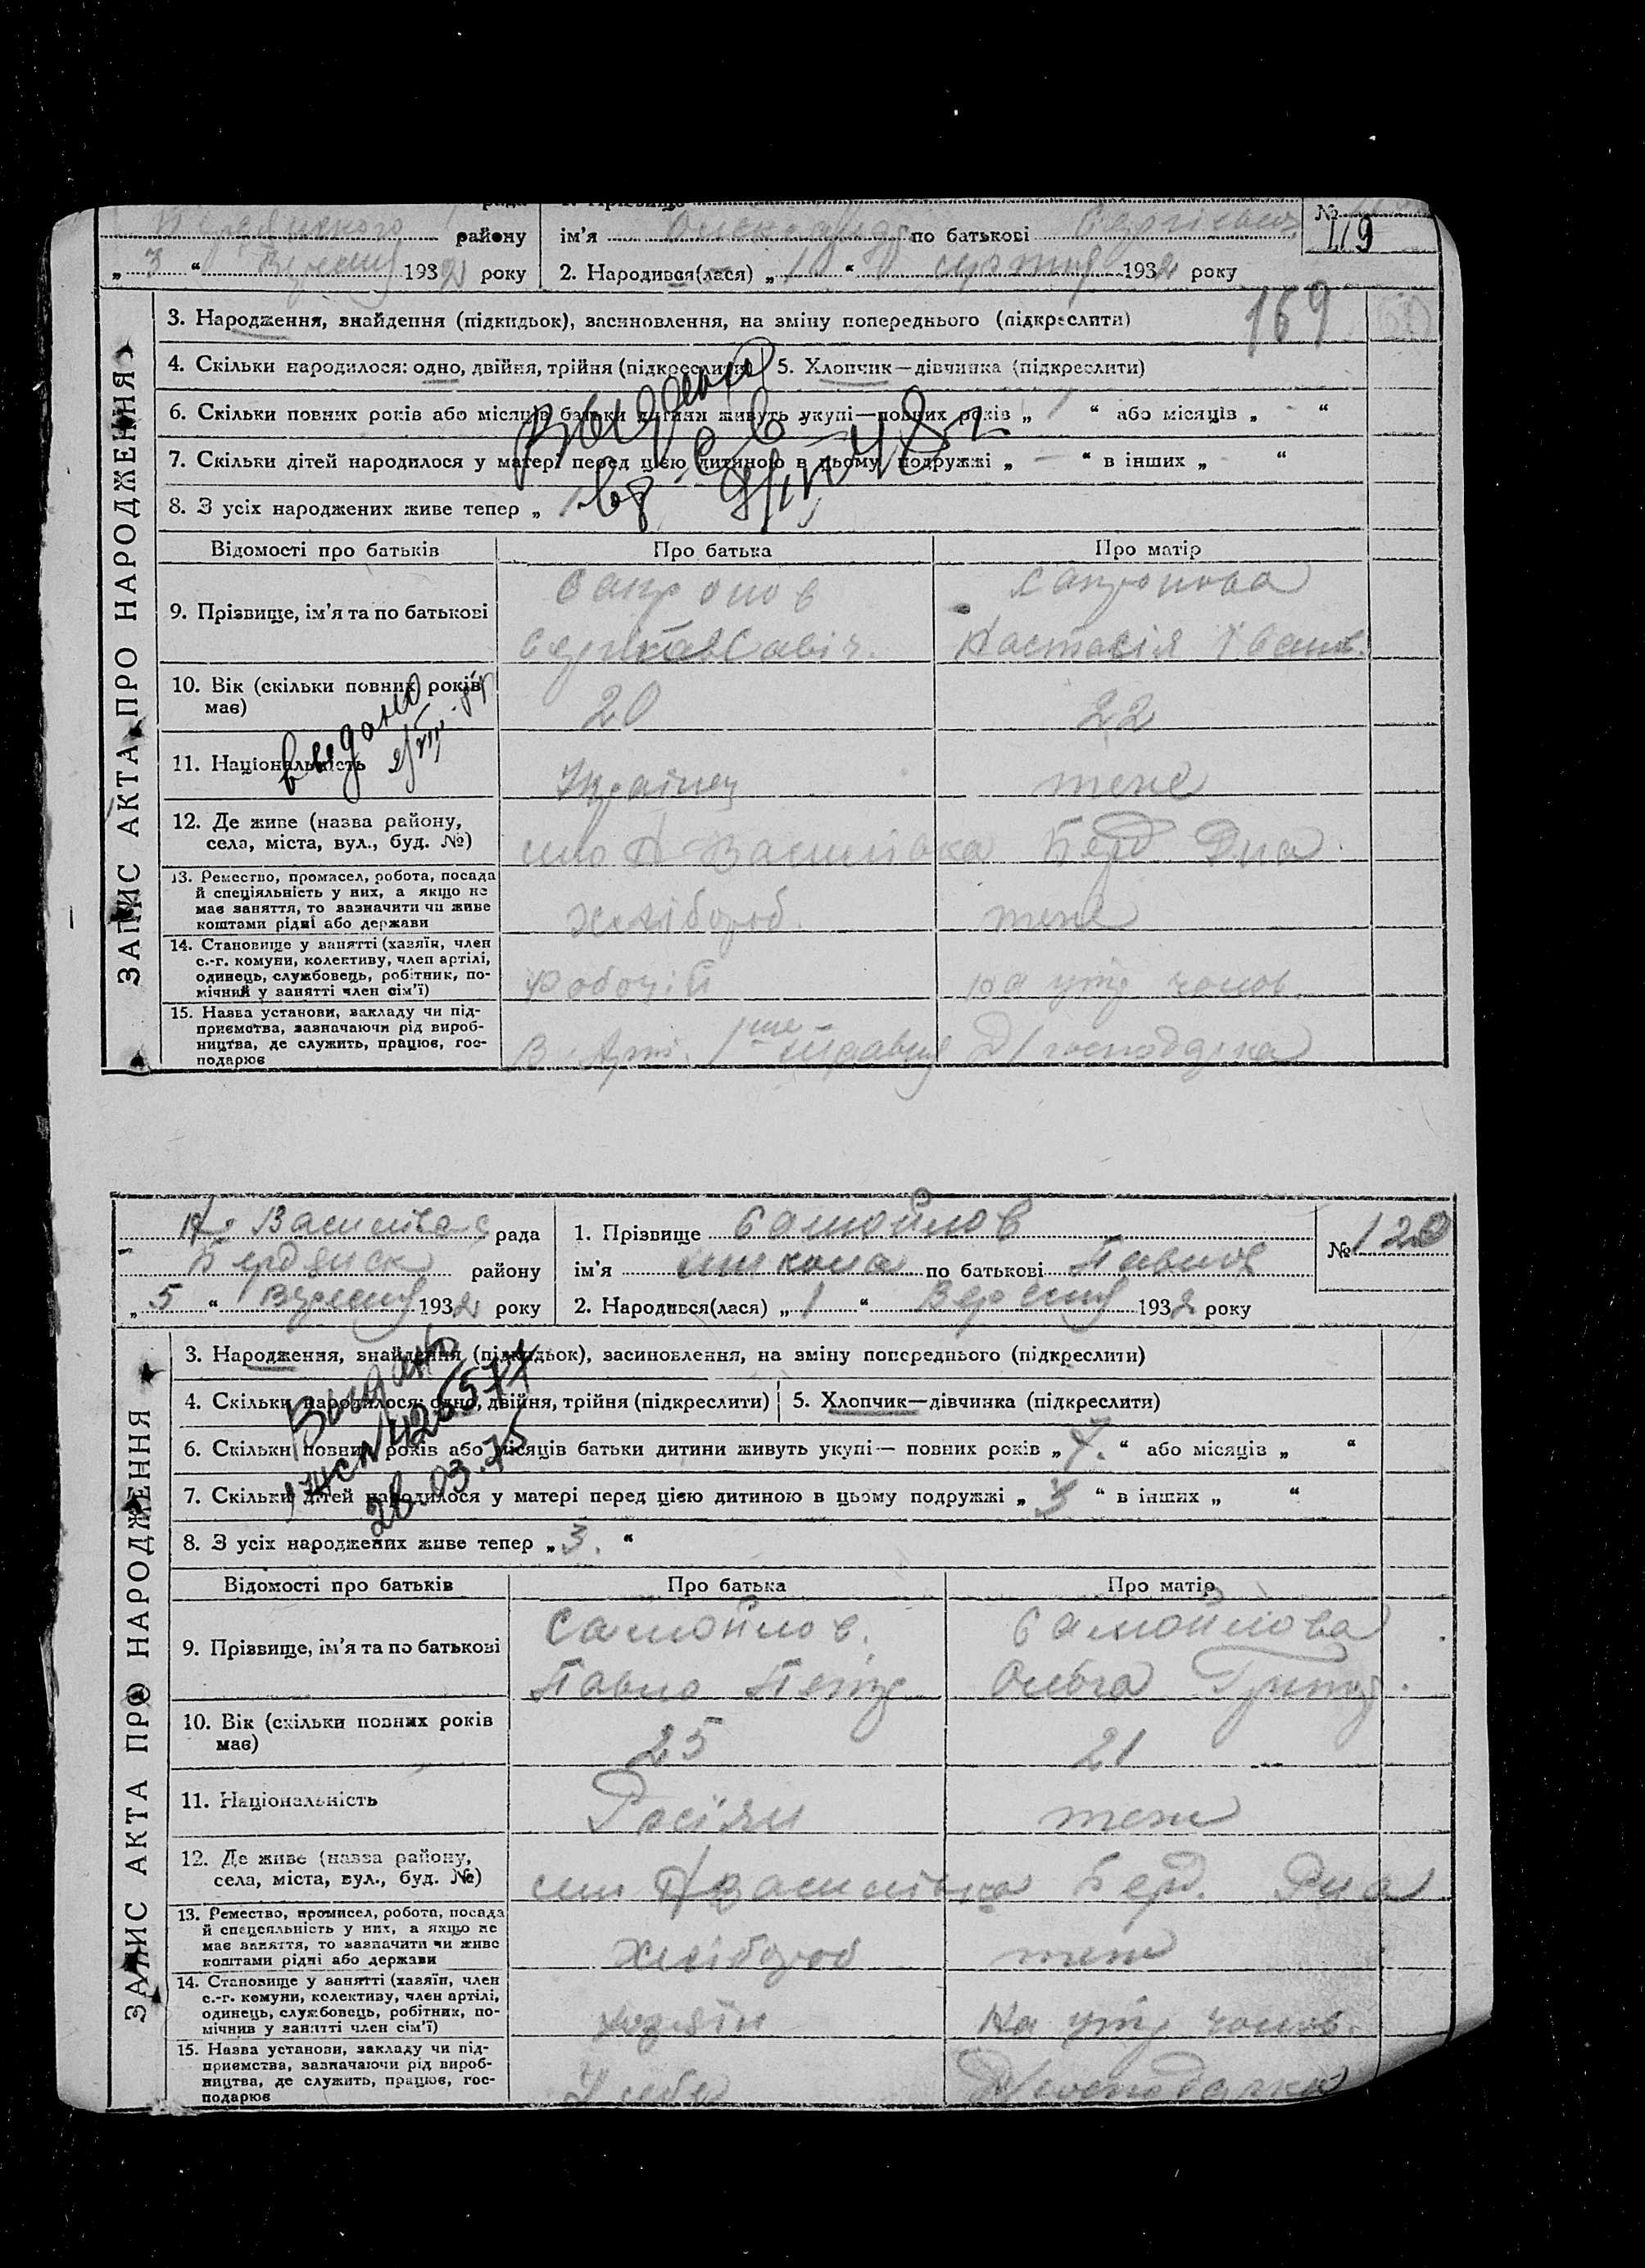 району ім'я Олександр по батькові №
„ 3 “ Вересня 1932 року 2. Народився(лася) „ “ 1932 року 119
169
3. Народження, знайдення (підкидьок), засиновлення, на зміну попереднього (підкреслити)
4. Скільки народилося: одно, двійня, трійня (підкреслити) 5. Хлопчик—дівчинка (підкреслити)
6. Скільки повних років або місяців батьки дитини живуть укупі—повних років „ 1 “ або місяців „ - “
7. Скільки дітей народилося у матері перед цією дитиною в цьому подружжі „ — “ в інших „ “
8. З усіх народжених живе тепер „ 1
Відомості про батьків Про батька Про матір
9. Прізвище, ім'я та по батькові Сапронов Сапронова
Савіч. Настасія Іванів.
10. Вік (скільки повних років має) 20 22
11. Національність Українец теже
12. Де живе (назва району, села, міста, вул., буд. №) село Н Василівка Берд Рна
13. Ремество, промисел, робота, посада й спеціяльність у них, а якщо не має заняття, то зазначити чи живе коштами рідні або держави Хлібороб. теже
14. Становище у занятті (хазяїн, член с.-г. комуни, колективу, член артілі, одинець, службовець, робітник, помічний у занятті член сім'ї) Робочій на утр чолов.
15. Назва установи, закладу чи підприємства, зазначаючи рід виробництва, де служить, працює, господарює В Арт. 1ше травня Д/господарка
ЗАПИС АКТА ПРО НАРОДЖЕННЯ
Н. Василівс рада 1. Прізвище Самойлов №120
Бердянск району ім'я Микола по батькові Павлов
„ 5 “ Вересня 1932 року 2. Народився(лася) „ 1 “ Вересня 1932 року
3. Народження, знайдення (підкидьок), засиновлення, на зміну попереднього (підкреслити)
4. Скільки народилося: одно, двійня, трійня (підкреслити) 5. Хлопчик—дівчинка (підкреслити)
6. Скільки повних років або місяців батьки дитини живуть укупі— повних років „ 7. “ або місяців „ “
7. Скільки дітей народилося у матері перед цією дитиною в цьому подружжі „ 3 “ в інших „ “
8. З усіх народжених живе тепер „ 3. “
28.03.75
Відомості про батьків Про батька Про матір
9. Прізвище, ім'я та по батькові Самойлов. Самойлова
Павло Петр Ольга Григ.
10. Вік (скільки повних років має) 25 21
11. Національність Росіян теж
12. Де живе (назва району, села, міста, вул., буд. №) село Н Василівка Берд. Рна
13. Ремество, промисел, робота, посада й спецеяльність у них, а якщо не має заняття, то зазначити чи живе коштами рідні або держави Хлібороб теж
14. Становище у занятті (хазяїн, член с.-г. комуни, колективу, член артілі, одинець, службовець, робітник, помічнив у занятті член сім'ї) хозяїн На утр чолов.
15. Назва установи, закладу чи підприємства, зазначаючи рід виробництва, де служить, працює, господарює У себе Д/господарка
ЗАПИС АКТА ПРО НАРОДЖЕННЯ